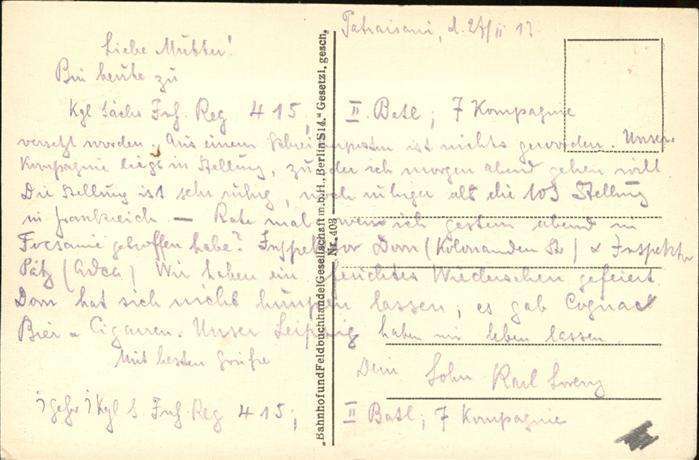 d. 24/II 17.
Liebe Mutter!
Bin heute zu
Kgl Sächs Inf. Reg 415, II. Batl; 7 Kompagnie
versetzt worden. Aus einem ist nichts geworden. Unsere
Kompagnie liegt in Stellung, zu der ich morgen abend gehen will.
Die Stellung ist sehr ruhig, noch ruhiger als die 103 Stellung
in Frankreich — Rate mal wen ich gestern abend in
Focsanie getroffen habe? Inspektor Dorn (Kolonnaden Str) & Inspektor
Pätz (Adca) Wir haben ein Wiedersehen gefeiert
Dorn hat sich nichts lassen, es gab Cognac
Bier u Cigarren. Unser Leipzig haben wir leben lassen
Mit besten Grüße
Dein Sohn Karl Lorenz
Kgl S. Inf. Reg 415; II Batl; 7 Kompagnie
„Bahnhof und Feldbuchhandel Gesellschaft m.b.H., Berlin S14." Gesetzl. gesch.
Nr. 403